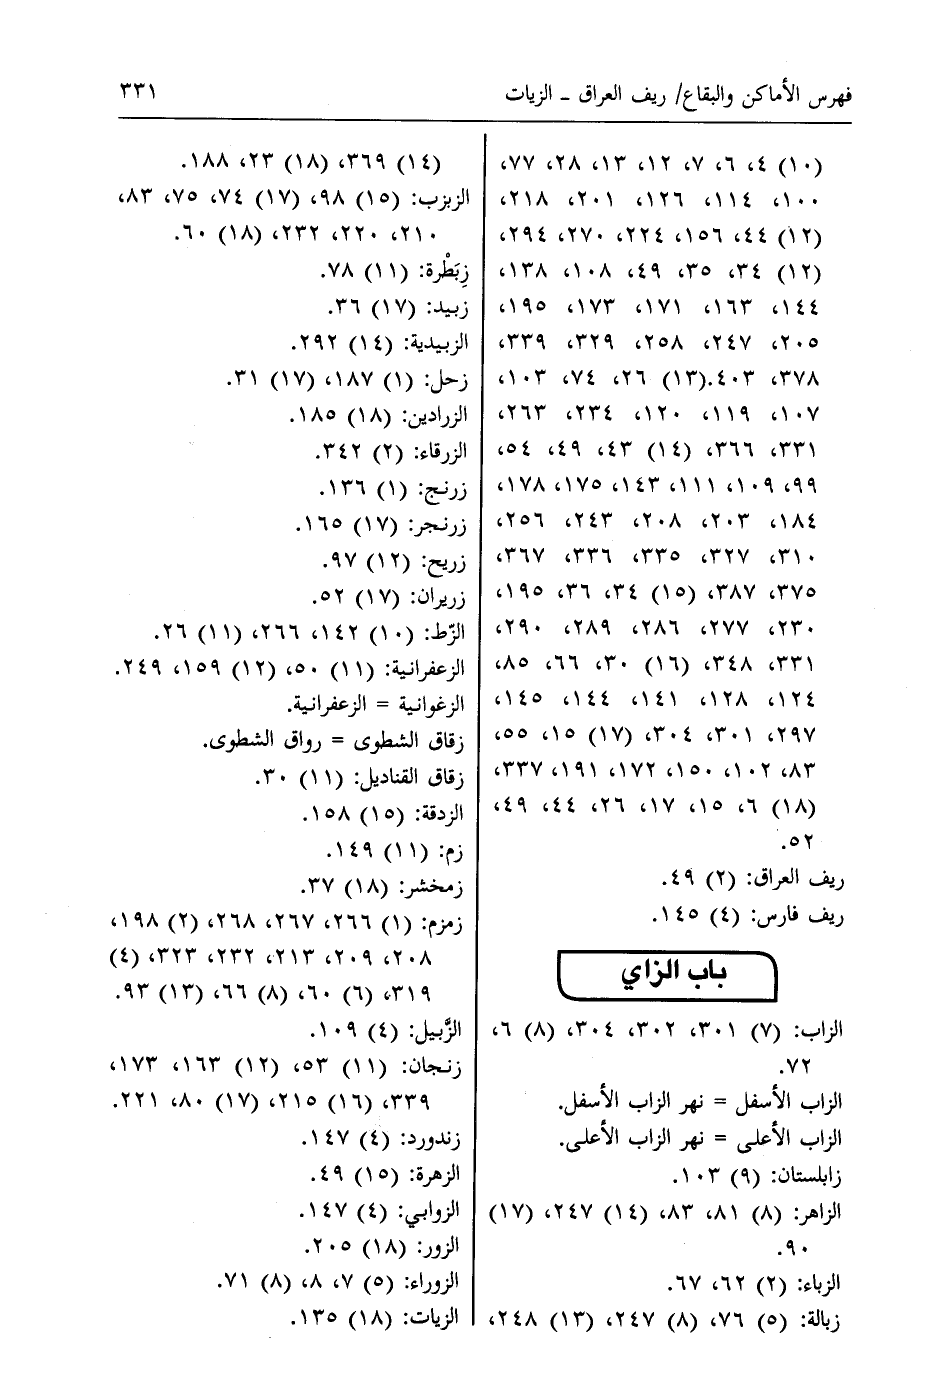 فهرس الأماكن والبقاع/ ريف العراق ـ الزيات
٣٣١
(١٠) ٤، ٦، ٧، ١٢، ١٣، ٢٨، ٧٧،
١٠٠، ١١٤، ١٢٦، ٢٠١، ٢١٨،
(١٢) ٤٤، ١٥٦، ٢٢٤، ٢٧٠، ٢٩٤،
(١٢) ٣٤، ٣٥، ٤٩، ١٠٨، ١٣٨،
١٤٤، ١٦٣، ١٧١، ١٧٣، ١٩٥،
٢٠٥، ٢٤٧، ٢٥٨، ٣٢٩، ٣٣٩،
٣٧٨، ٤٠٣.(١٣) ٢٦، ٧٤، ١٠٣،
١٠٧، ١١٩، ١٢٠، ٢٣٤، ٢٦٣،
٣٣١، ٣٦٦، (١٤) ٤٣، ٤٩، ٥٤،
٩٩، ١٠٩، ١١١، ١٤٣، ١٧٥، ١٧٨،
١٨٤، ٢٠٣، ٢٠٨، ٢٤٣، ٢٥٦،
٣١٠، ٣٢٧، ٣٣٥، ٣٣٦، ٣٦٧،
٣٧٥، ٣٨٧، (١٥) ٣٤، ٣٦، ١٩٥،
٢٣٠، ٢٧٧، ٢٨٦، ٢٨٩، ٢٩٠،
٣٣١، ٣٤٨، (١٦) ٣٠، ٦٦، ٨٥،
١٢٤، ١٢٨، ١٤١، ١٤٤، ١٤٥،
٢٩٧، ٣٠١، ٣٠٤، (١٧) ١٥، ٥٥،
٨٣، ١٠٢، ١٥٠، ١٧٢، ١٩١، ٣٣٧،
(١٨) ٦، ١٥، ١٧، ٢٦، ٤٤، ٤٩،
٥٢.
ريف العراق: (٢) ٤٩.
ريف فارس: (٤) ١٤٥.
باب الزاي
الزاب: (٧) ٣٠١، ٣٠٢، ٣٠٤، (٨) ٦،
٧٢.
الزاب الأسفل = نهر الزاب الأسفل.
الزاب الأعلى = نهر الزاب الأعلى.
زابلستان: (٩) ١٠٣.
الزاهر: (٨) ٨١، ٨٣، (١٤) ٢٤٧، (١٧)
٩٠.
الزباء: (٢) ٦٢، ٦٧.
زبالة: (٥) ٧٦، (٨) ٢٤٧، (١٣) ٢٤٨،
(١٤) ٣٦٩، (١٨) ٢٣، ١٨٨.
الزبزب: (١٥) ٩٨، (١٧) ٧٤، ٧٥، ٨٣،
٢١٠، ٢٢٠، ٢٣٢، (١٨) ٦٠.
زِبَطْرة: (١١) ٧٨.
زبيد: (١٧) ٣٦.
الزبيدية: (١٤) ٢٩٢.
زحل: (١) ١٨٧، (١٧) ٣١.
الزرادين: (١٨) ١٨٥.
الزرقاء: (٢) ٣٤٢.
زرنج: (١) ١٣٦.
زرنجر: (١٧) ١٦٥.
زريح: (١٢) ٩٧.
زريران: (١٧) ٥٢.
الزّط: (١٠) ١٤٢، ٢٦٦، (١١) ٢٦.
الزعفرانية: (١١) ٥٠، (١٢) ١٥٩، ٢٤٩.
الزغوانية = الزعفرانية.
زقاق الشطوى = رواق الشطوى.
زقاق القناديل: (١١) ٣٠.
الزدقة: (١٥) ١٥٨.
زم: (١١) ١٤٩.
زمخشر: (١٨) ٣٧.
زمزم: (١) ٢٦٦، ٢٦٧، ٢٦٨، (٢) ١٩٨،
٢٠٨، ٢٠٩، ٢١٣، ٢٣٢، ٣٢٣، (٤)
٣١٩، (٦) ٦٠، (٨) ٦٦، (١٣) ٩٣.
الزَّبيل: (٤) ١٠٩.
زنجان: (١١) ٥٣، (١٢) ١٦٣، ١٧٣،
٣٣٩، (١٦) ٢١٥، (١٧) ٨٠، ٢٢١.
زندورد: (٤) ١٤٧.
الزهرة: (١٥) ٤٩.
الزوابي: (٤) ١٤٧.
الزور: (١٨) ٢٠٥.
الزوراء: (٥) ٧، ٨، (٨) ٧١.
الزيات: (١٨) ١٣٥.